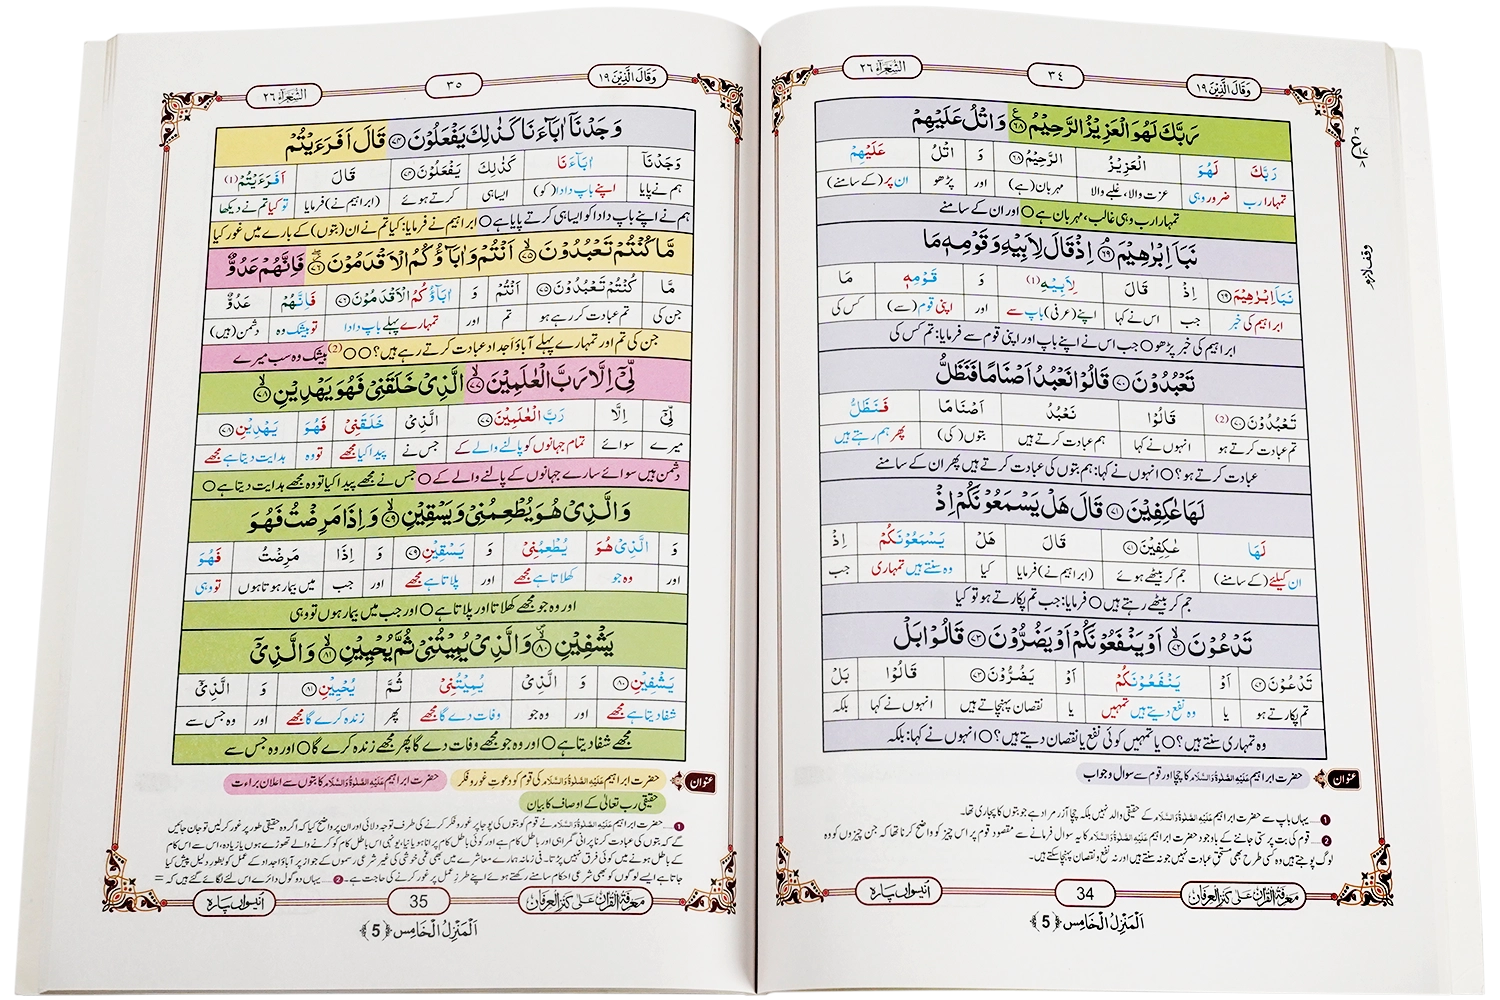 وَقَالَ الَّذِیْنَ ١٩
٣٤
الشُّعَرَآء ٢٦
رَبَّكَ لَهُوَ الْعَزِیْزُ الرَّحِیْمُ ﴿٦٨﴾ وَاتْلُ عَلَیْهِمْ
رَبَّكَ لَهُوَ الْعَزِیْزُ الرَّحِیْمُ ﴿٦٨﴾ وَ اتْلُ عَلَیْهِمْ
تمہارا رب ضرور وہی عزت والا، غلبے والا مہربان (ہے) اور پڑھو ان پر (کے سامنے)
تمہارا رب وہی غالب، مہربان ہے ○ اور ان کے سامنے
نَبَاَ اِبْرٰهِیْمَ ﴿٦٩﴾ اِذْ قَالَ لِاَبِیْهِ وَ قَوْمِهٖ مَا
نَبَاَ اِبْرٰهِیْمَ ﴿٦٩﴾ اِذْ قَالَ لِاَبِیْهِ (1) وَ قَوْمِهٖ مَا
ابراہیم کی خبر جب اس نے کہا اپنے (عرفی) باپ سے اور اپنی قوم (سے) کس کی
ابراہیم کی خبر پڑھو ○ جب اس نے اپنے باپ اور اپنی قوم سے فرمایا: تم کس کی
تَعْبُدُوْنَ ﴿٧٠﴾ قَالُوْا نَعْبُدُ اَصْنَامًا فَنَظَلُّ
تَعْبُدُوْنَ ﴿٧٠﴾ (2) قَالُوْا نَعْبُدُ اَصْنَامًا فَنَظَلُّ
تم عبادت کرتے ہو انہوں نے کہا ہم عبادت کرتے ہیں بتوں (کی) پھر ہم رہتے ہیں
عبادت کرتے ہو؟ ○ انہوں نے کہا: ہم بتوں کی عبادت کرتے ہیں پھر ان کے سامنے
لَهَا عٰكِفِیْنَ ﴿٧١﴾ قَالَ هَلْ یَسْمَعُوْنَكُمْ اِذْ
لَهَا عٰكِفِیْنَ ﴿٧١﴾ قَالَ هَلْ یَسْمَعُوْنَكُمْ اِذْ
ان کیلئے (کے سامنے) جم کر بیٹھے ہوئے (ابراہیم نے) فرمایا کیا وہ سنتے ہیں تمہاری جب
جم کر بیٹھے رہتے ہیں ○ فرمایا: جب تم پکارتے ہو تو کیا
تَدْعُوْنَ ﴿٧٢﴾ اَوْ یَنْفَعُوْنَكُمْ اَوْ یَضُرُّوْنَ ﴿٧٣﴾ قَالُوْا بَلْ
تَدْعُوْنَ ﴿٧٢﴾ اَوْ یَنْفَعُوْنَكُمْ اَوْ یَضُرُّوْنَ ﴿٧٣﴾ قَالُوْا بَلْ
تم پکارتے ہو یا وہ نفع دیتے ہیں تمہیں یا نقصان پہنچاتے ہیں انہوں نے کہا بلکہ
وہ تمہاری سنتے ہیں؟ ○ یا تمہیں کوئی نفع یا نقصان دیتے ہیں؟ ○ انہوں نے کہا: بلکہ
عنوان حضرت ابراہیم عَلَیْهِ الصَّلٰوةُ وَالسَّلَام کا چچا اور قوم سے سوال و جواب
1 ..... یہاں باپ سے حضرت ابراہیم عَلَیْهِ الصَّلٰوةُ وَالسَّلَام کے حقیقی والد نہیں بلکہ چچا آزر مراد ہے جو بتوں کا پجاری تھا۔
2 ..... قوم کی بت پرستی جاننے کے باوجود حضرت ابراہیم عَلَیْهِ الصَّلٰوةُ وَالسَّلَام کا یہ سوال فرمانے سے مقصود قوم پر اس چیز کو واضح کرنا تھا کہ جن چیزوں کو وہ
لوگ پوجتے ہیں وہ کسی طرح بھی مستحق عبادت نہیں جو نہ سنتے ہیں اور نہ نفع و نقصان پہنچا سکتے ہیں۔
معرفة القرآن علی كنز العرفان
34
انیسواں پارہ
اَلْمَنْزِلُ الْخَامِس ﴿5﴾
وقف لازم
وَقَالَ الَّذِیْنَ ١٩
٣٥
الشُّعَرَآء ٢٦
وَجَدْنَاۤ اٰبَآءَنَا كَذٰلِكَ یَفْعَلُوْنَ ﴿٧٤﴾ قَالَ اَفَرَءَیْتُمْ
وَجَدْنَاۤ اٰبَآءَنَا كَذٰلِكَ یَفْعَلُوْنَ ﴿٧٤﴾ قَالَ اَفَرَءَیْتُمْ (1)
ہم نے پایا اپنے باپ دادا (کو) ایسا ہی کرتے ہوئے (ابراہیم نے) فرمایا تو کیا تم نے دیکھا
ہم نے اپنے باپ دادا کو ایسا ہی کرتے پایا ہے ○ ابراہیم نے فرمایا: کیا تم نے ان (بتوں) کے بارے میں غور کیا
مَّا كُنْتُمْ تَعْبُدُوْنَ ﴿٧٥﴾ اَنْتُمْ وَ اٰبَآؤُكُمُ الْاَقْدَمُوْنَ ﴿٧٦﴾ فَاِنَّهُمْ عَدُوٌّ
مَّا كُنْتُمْ تَعْبُدُوْنَ ﴿٧٥﴾ اَنْتُمْ وَ اٰبَآؤُكُمُ الْاَقْدَمُوْنَ ﴿٧٦﴾ فَاِنَّهُمْ عَدُوٌّ
جن کی تم عبادت کر رہے ہو تم اور تمہارے پہلے باپ دادا تو بیشک وہ دشمن (ہیں)
جن کی تم اور تمہارے پہلے آباؤ اَجداد عبادت کرتے رہے ہیں؟ ○ ○ (2) بیشک وہ سب میرے
لِّیْۤ اِلَّا رَبَّ الْعٰلَمِیْنَ ﴿٧٧﴾ الَّذِیْ خَلَقَنِیْ فَهُوَ یَهْدِیْنِ ﴿٧٨﴾
لِّیْۤ اِلَّا رَبَّ الْعٰلَمِیْنَ ﴿٧٧﴾ الَّذِیْ خَلَقَنِیْ فَهُوَ یَهْدِیْنِ ﴿٧٨﴾
میرے سوائے تمام جہانوں کو پالنے والے کے جس نے پیدا کیا مجھے تو وہ ہدایت دیتا ہے مجھے
دشمن ہیں سوائے سارے جہانوں کے پالنے والے کے ○ جس نے مجھے پیدا کیا تو وہ مجھے ہدایت دیتا ہے ○
وَ الَّذِیْ هُوَ یُطْعِمُنِیْ وَ یَسْقِیْنِ ﴿٧٩﴾ وَ اِذَا مَرِضْتُ فَهُوَ
وَ الَّذِیْ هُوَ یُطْعِمُنِیْ وَ یَسْقِیْنِ ﴿٧٩﴾ وَ اِذَا مَرِضْتُ فَهُوَ
اور وہ جو کھلاتا ہے مجھے اور پلاتا ہے مجھے اور جب میں بیمار ہوتا ہوں تو وہی
اور وہ جو مجھے کھلاتا اور پلاتا ہے ○ اور جب میں بیمار ہوں تو وہی
یَشْفِیْنِ ﴿٨٠﴾ وَ الَّذِیْ یُمِیْتُنِیْ ثُمَّ یُحْیِیْنِ ﴿٨١﴾ وَ الَّذِیْۤ
یَشْفِیْنِ ﴿٨٠﴾ وَ الَّذِیْ یُمِیْتُنِیْ ثُمَّ یُحْیِیْنِ ﴿٨١﴾ وَ الَّذِیْۤ
شفا دیتا ہے مجھے اور وہ جو وفات دے گا مجھے پھر زندہ کرے گا مجھے اور وہ جس سے
مجھے شفا دیتا ہے ○ اور وہ جو مجھے وفات دے گا پھر مجھے زندہ کرے گا ○ اور وہ جس سے
عنوان حضرت ابراہیم عَلَیْهِ الصَّلٰوةُ وَالسَّلَام کی قوم کو دعوتِ غور و فکر حضرت ابراہیم عَلَیْهِ الصَّلٰوةُ وَالسَّلَام کا بتوں سے اعلانِ براءت
حقیقی رب تعالیٰ کے اوصاف کا بیان
1 ..... حضرت ابراہیم عَلَیْهِ الصَّلٰوةُ وَالسَّلَام نے قوم کو بتوں کی پوجا پر غور و فکر کرنے کی طرف توجہ دلائی اور ان پر واضح کیا کہ اگر وہ حقیقی طور پر غور کر لیں تو جان جائیں
گے کہ بتوں کی عبادت کرنا پرانی گمراہی اور باطل کام ہے اور کوئی باطل کام پرانا ہو یا نیا، یونہی اس باطل کام کو کرنے والے تھوڑے ہوں یا زیادہ، اس سے اس کام
کے باطل ہونے میں کوئی فرق نہیں پڑتا۔ فی زمانہ ہمارے معاشرے میں بھی غمی خوشی کی غیر شرعی رسموں کے جواز پر آباؤ اجداد کے عمل کو بطورِ دلیل پیش کیا
جاتا ہے ایسے لوگوں کو بھی شرعی احکام سامنے رکھتے ہوئے اپنے طرزِ عمل پر غور کرنے کی حاجت ہے۔ 2 ..... یہاں دو گول دائرے اس لئے لگائے گئے ہیں کہ =
معرفة القرآن علی كنز العرفان
35
انیسواں پارہ
اَلْمَنْزِلُ الْخَامِس ﴿5﴾